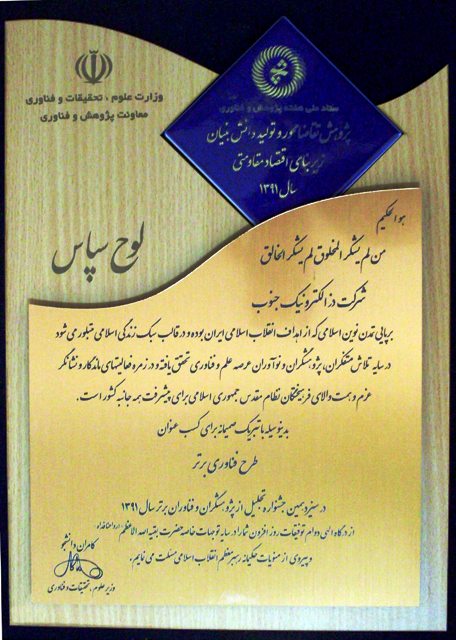 وزارت علوم ، تحقیقات و فناوری
معاونت پژوهش و فناوری
ستاد ملی هفته پژوهش و فناوری
پژوهش تقاضا محور و تولید دانش بنیان
زیر بنای اقتصاد مقاومتی
سال ۱۳۹۱
لوح سپاس
هوالحکیم
من لم یشکر المخلوق لم یشکر الخالق
شرکت دز الکترونیک جنوب
برپایی تمدن نوین اسلامی که از اهداف انقلاب اسلامی ایران بوده و در قالب سبک زندگی اسلامی متبلور می شود
در سایه تلاش متفکران، پژوهشگران و نوآوران عرصه علم و فناوری تحقق یافته و در زمره فعالیتهای ماندگار و نشانگر
عزم و همت والای فرهیختگان نظام مقدس جمهوری اسلامی برای پیشرفت همه جانبه کشور است.
بدینوسیله با تبریک صمیمانه برای کسب عنوان
طرح فناوری برتر
در سیزدهمین جشنواره تجلیل از پژوهشگران و فناوران برتر سال ۱۳۹۱
از درگاه الهی دوام توفیقات روز افزون شما را در سایه توجهات خاصه حضرت بقیة الله الاعظم
و پیروی از منویات حکیمانه رهبر معظم انقلاب اسلامی مسئلت می نمایم.
کامران دانشجو
وزیر علوم، تحقیقات و فناوری